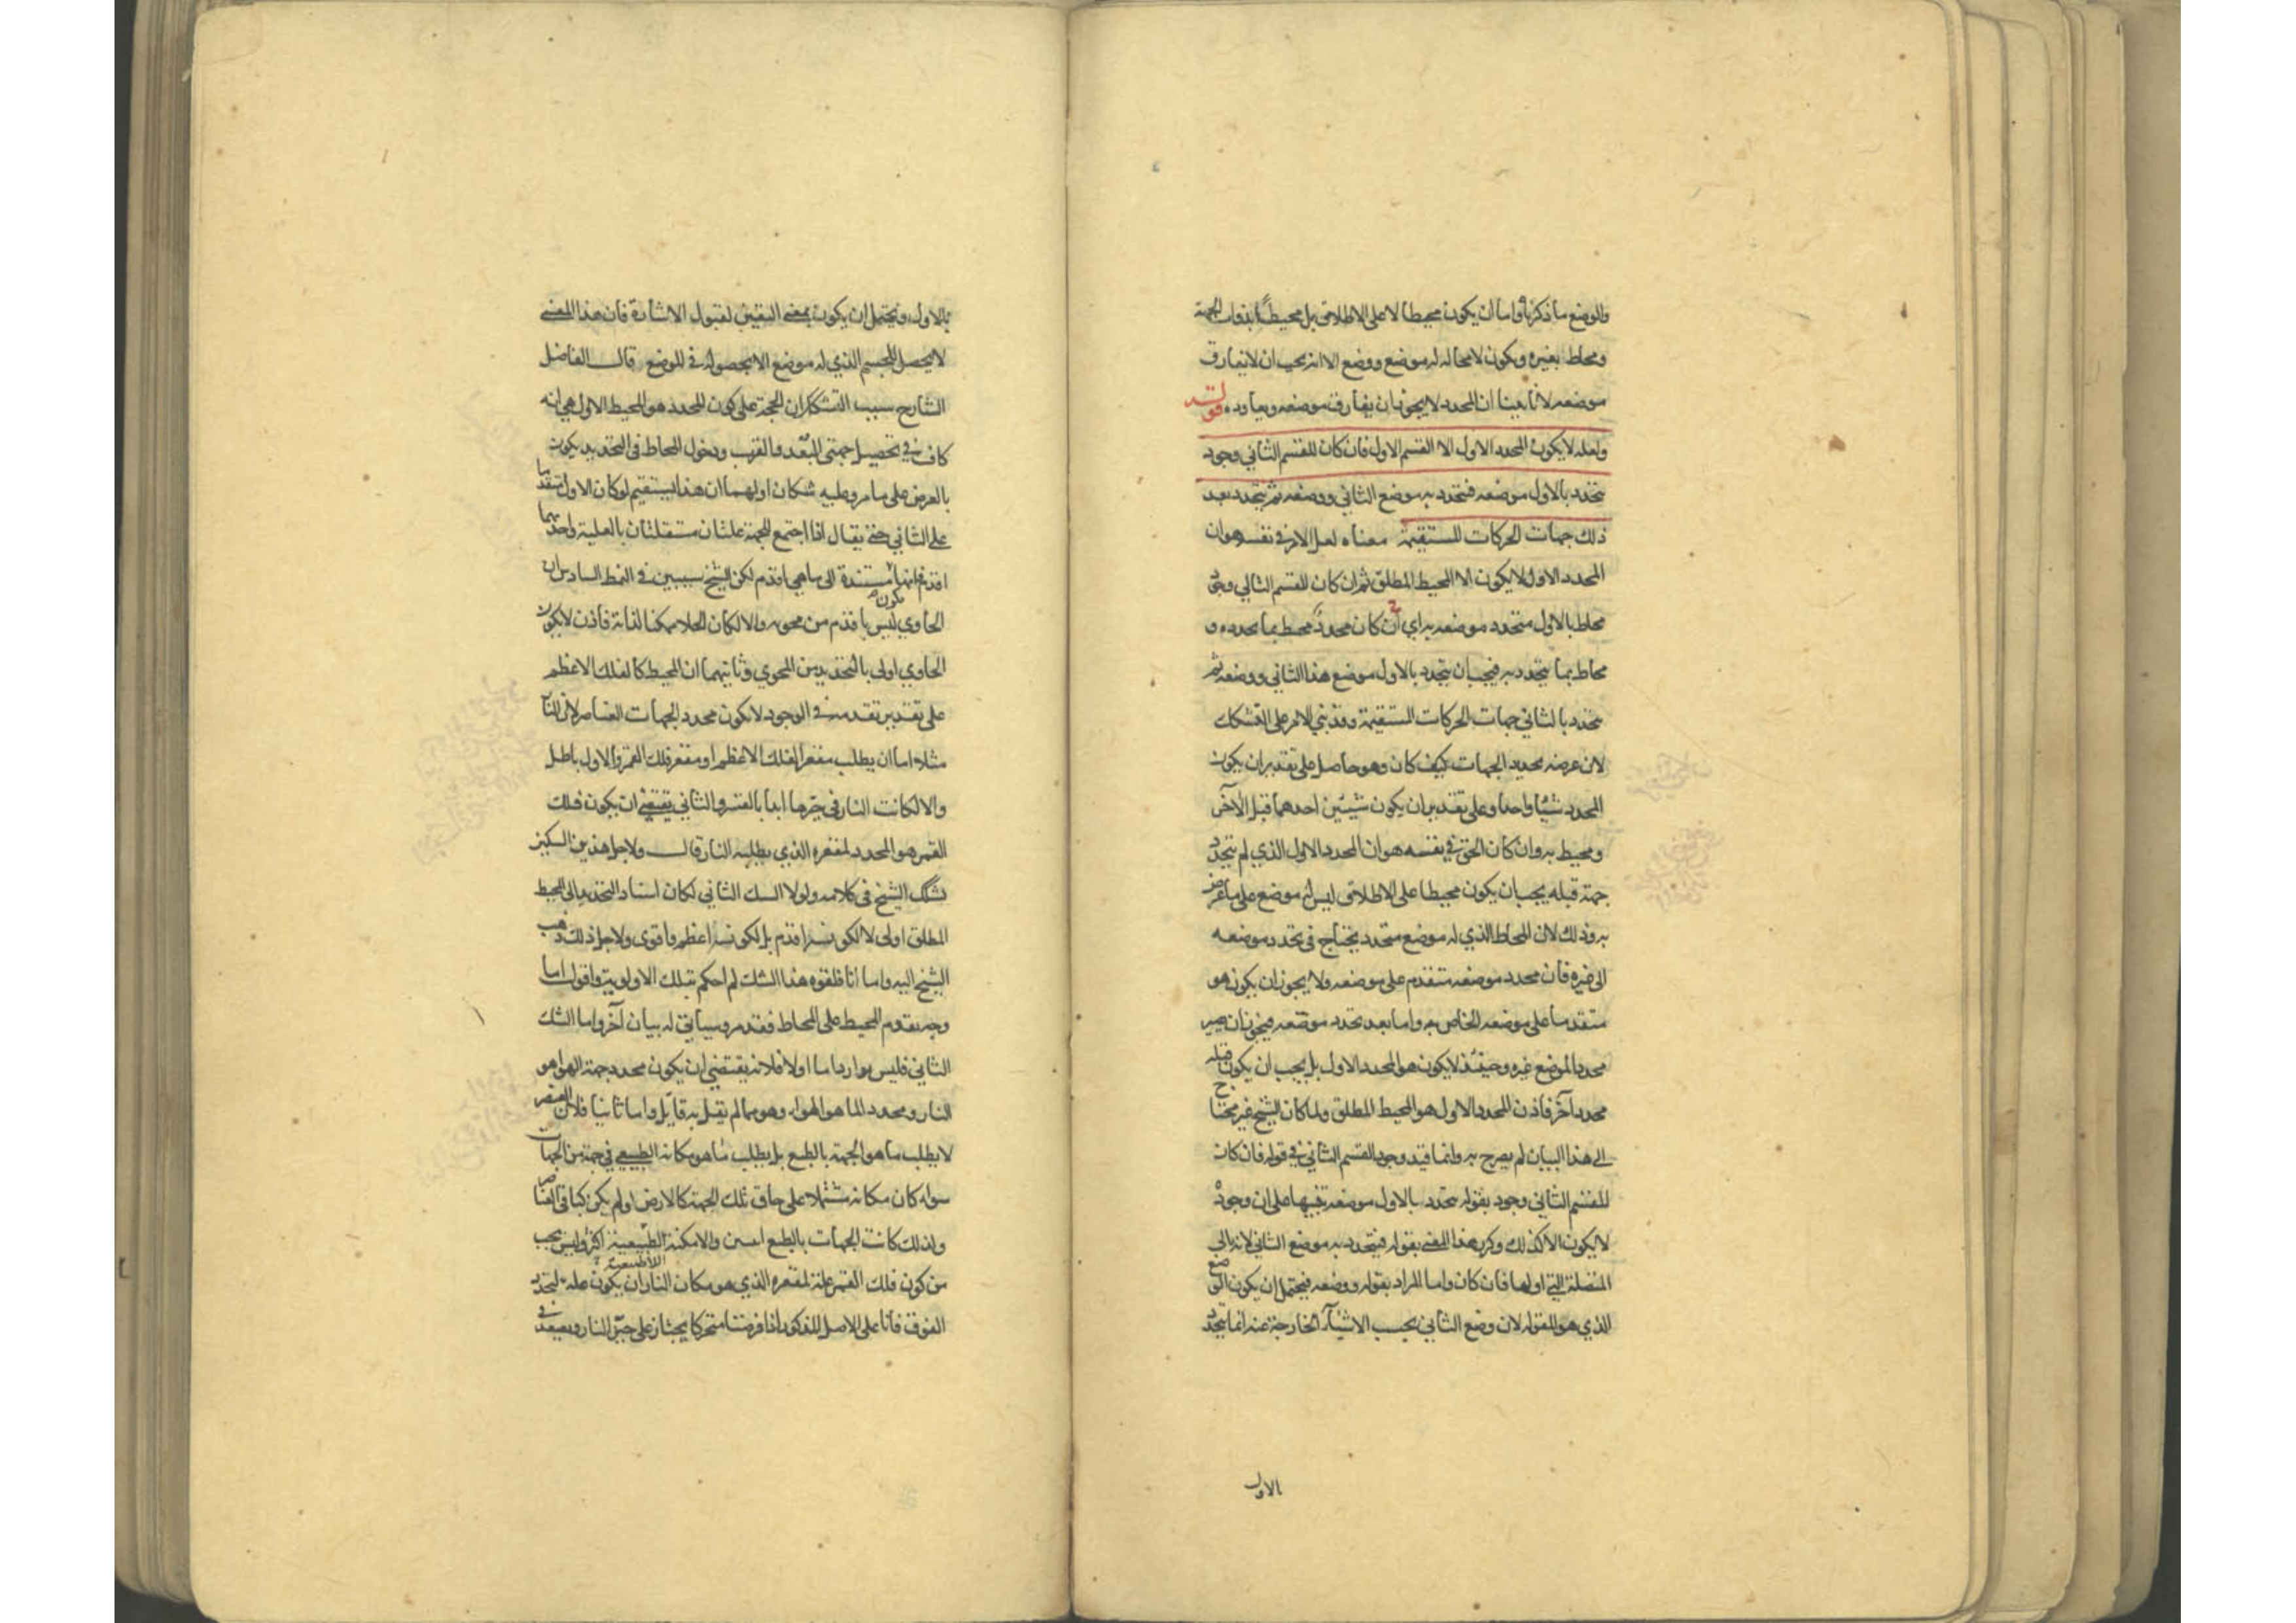 والوضع ما ذكرناه واما ان يكون محيطا لا على الاطلاق بل محيطا بذوات الجهة
ومحاط بغيره ويكون لا محالة له موضع ووضع الا انه يجب ان لا يفارق
موضعه لانا بينا ان المحدد لا يجوز ان يفارق موضعه ويعاوده قوله
ولعله لا يكون المحدد الاول الا القسم الاول فان كان للقسم الثاني وجود
يتحدد بالاول موضعه فيتحدد به موضع الثاني ووضعه ثم يتحدد بعد
ذلك جهات الحركات المستقيمة معناه لعل الامر في نفسه هو ان
المحدد الاول لا يكون الا المحيط المطلق ثم ان كان للقسم الثاني وجود
محاط بالاول متحدد موضعه به اي ان كان محدد محيط بما يحدده و
محاط بما يتحدد به فيجب ان يتحدد بالاول موضع هذا الثاني ووضعه ثم
يتحدد بالثاني جهات الحركات المستقيمة وقد بني الامر على التشكك
لان غرضه تحديد الجهات كيف كان وهو حاصل على تقدير ان يكون
المحدد شيئا واحدا وعلى تقدير ان يكون شيئين احدهما قبل الآخر
ومحيط به وان كان الحق في نفسه هو ان المحدد الاول الذي لم يتحدد
جهة قبله يجب ان يكون محيطا على الاطلاق ليس له موضع على ما عرض
به وذلك لان المحاط الذي له موضع متحدد يحتاج في تحدد موضعه
الى غيره فان محدد موضعه متقدم على موضعه ولا يجوز ان يكون هو
متقدما على موضعه الخاص به واما بعد تحدد موضعه فيجوز ان يصير
محددا لموضع غيره وحينئذ لا يكون هو المحدد الاول بل يجب ان يكون قبله
محدد آخر فاذن المحدد الاول هو المحيط المطلق ولما كان الشيخ غير محتاج
الى هذا البيان لم يصرح به وانما قيد وجود القسم الثاني في قوله فان كان
للقسم الثاني وجود بقوله يتحدد بالاول موضعه تنبيها على ان وجوده
لا يكون الا كذلك وكرر هذا المعنى بقوله فيتحدد به موضع الثاني لانه تالي
المتصلة التي اولها فان كان واما المراد بقوله ووضعه فيحتمل ان يكون الوضع
الذي هو المقولة لان وضع الثاني بحسب الاشيآء الخارجة عنه انما يتحدد
الاول
بالاول ويحتمل ان يكون بمعنى التعين لقبول الاشارة فان هذا المعنى
لا يحصل للجسم الذي له موضع الا بحصوله في الموضع قال الفاضل
الشارح سبب التشكك ان الحجة على كون المحدد هو المحيط الاول هي انه
كاف في تحصيل جهتي البعد والقرب ودخول المحاط في التحديد يكون
بالعرض على ما مر وعليه شكان اولهما ان هذا يستقيم لو كان الاول متقدما
على الثاني حتى يقال اذا اجتمع للجهة علتان مستقلتان بالعلية واحدتهما
اقدم فانها مستندة الى ما هي اقدم لكن الشيخ سيبين في النمط السادس ان
الحاوي ليس باقدم من محويه والا لكان الخلاء ممكنا لذاته فاذن لا يكون
الحاوي اولى بالتحديد من المحوي وثانيهما ان المحيط كالفلك الاعظم
على تقدير تقدمه في الوجود لا يكون محدد الجهات العناصر لان النار
مثلا اما ان يطلب مقعر الفلك الاعظم او مقعر فلك القمر والاول باطل
والا لكانت النار في حيزها ابدا بالقسر والثاني يقتضي ان يكون فلك
القمر هو المحدد لمقعره الذي يطلبه النار قال ولاجل هذين الشكين
شكك الشيخ في كلامه ولولا الشك الثاني لكان اسناد التحديد الى المحيط
المطلق اولى لا لكونه اقدم بل لكونه اعظم واقوى ولاجل ذلك ذهب
الشيخ اليه واما انا فلقوة هذا الشك لم احكم بتلك الاولوية واقول اما
وجه تقدم المحيط على المحاط فقد مر وسياتي له بيان آخر واما الشك
الثاني فليس بوارد اما اولا فلانه يقتضي ان يكون محدد جهة الهواء هو
النار ومحدد الماء هو الهواء وهو مما لم يقل به قائل واما ثانيا فلان العنصر
لا يطلب ما هو الجهة بالطبع بل يطلب ما هو مكانه الطبيعي في جهة من الجهات
سواء كان مكانه مشتملا على حاق تلك الجهة كالارض او لم يكن كباقي العناصر
ولذلك كانت الجهات بالطبع اثنين والامكنة الطبيعية اكثر وليس يجب
من كون فلك القمر علة لمقعره الذي هو مكان النار ان يكون علة لتحدد
الفوق فانا على الاصل المذكور اذا فرضنا متحركا يجتاز على حيز النار ويصعد في